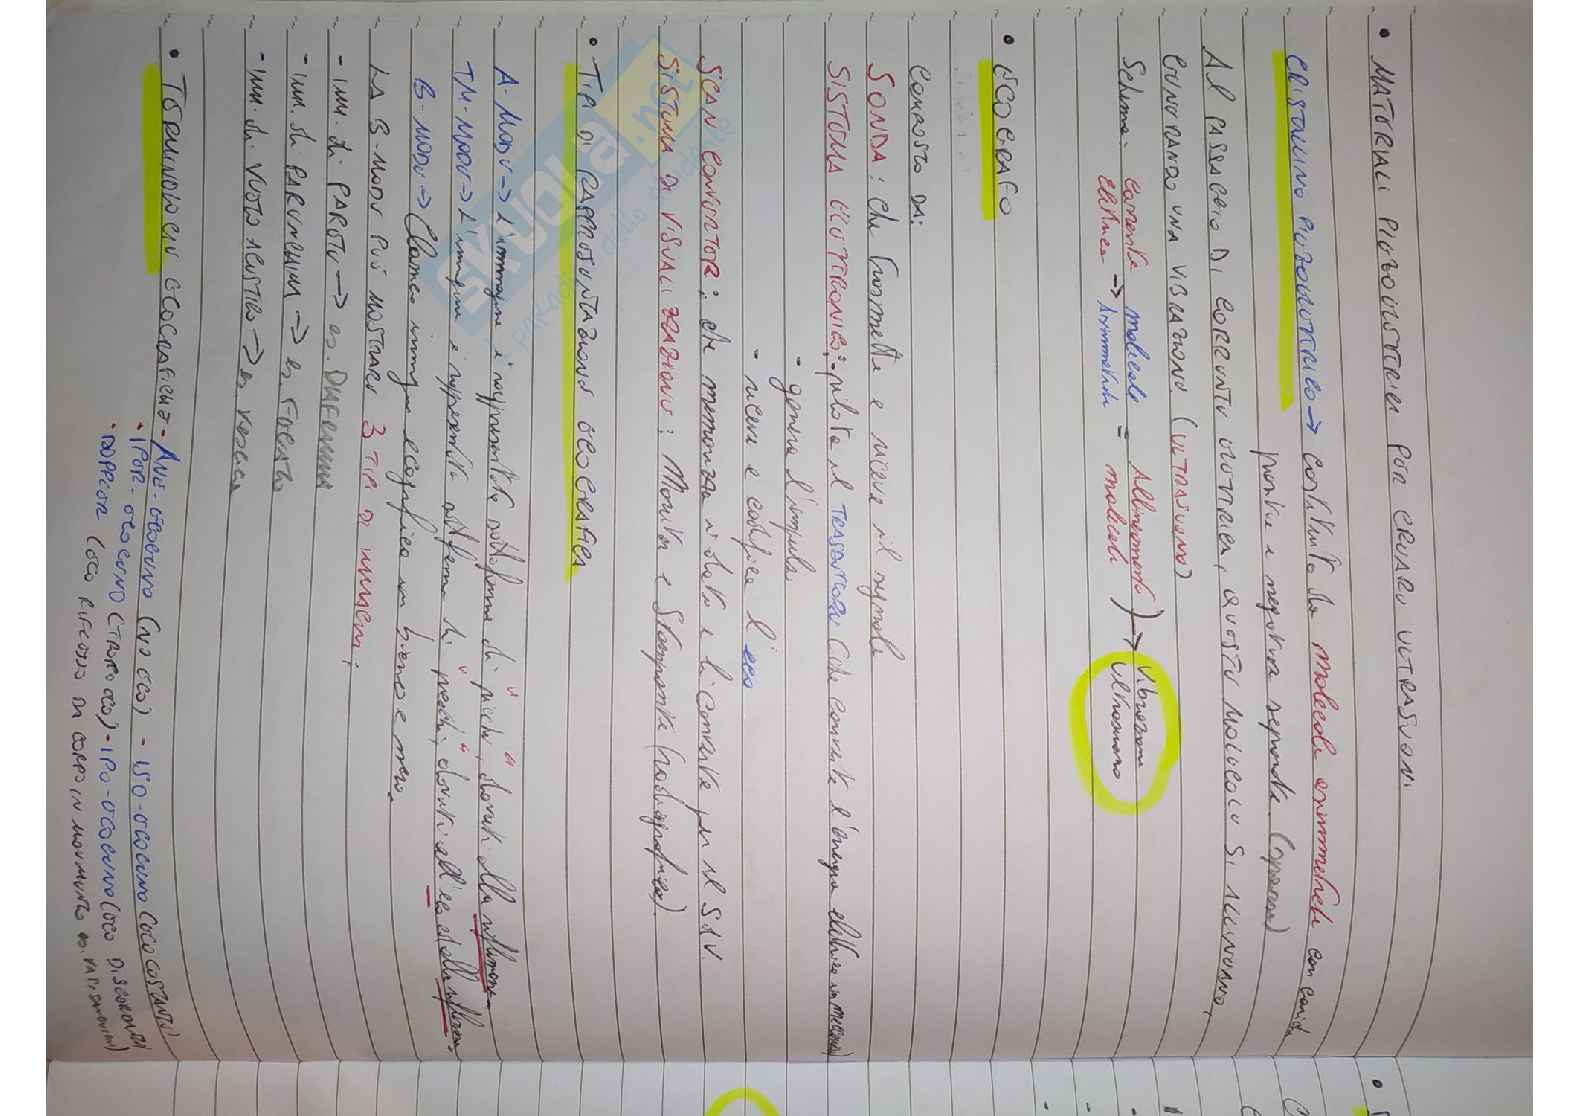 • MATERIALI PIEZOELETTRICI PER CREARE ULTRASUONI
CRISTALLINO PIEZOELETTRICO → costituito da molecole asimmetriche con carica
positiva e negativa separata (opposta)
Al PASSAGGIO DI CORRENTE ELETTRICA, QUESTE MOLECOLE SI ALLINEANO,
GENERANDO UNA VIBRAZIONE (ULTRASUONO)
Schema: corrente molecole = Allineamento ) → Vibrazioni
elettrica → Asimmetriche = molecole Ultrasuono
• ECOGRAFO
COMPOSTO DA:
SONDA: che trasmette e riceve il segnale
SISTEMA ELETTRONICO: - pilota il TRASDUTTORE (che converte l'energia elettrica in meccanica)
- genera l'impulso
- riceve e codifica l'eco
SCAN CONVERTER: che memorizza i dati e li converte per il S.d.V.
SISTEMA DI VISUALIZZAZIONE: Monitor e Stampante (
• TIPI DI RAPPRESENTAZIONE ECOGRAFICA
A-MODE → L'immagine è rappresentata sottoforma di "picchi", dovuti alla riflessione
TM-MODE → L'immagine è rappresentata sottoforma di " ", dovuti all'eco della riflessione
B-MODE → Classica immagine ecografica in bianco e nero.
LA B-MODE PUÒ MOSTRARE 3 TIPI DI IMMAGINI:
- imm. di PARETE → es. DIAFRAMMA
- imm. di PARENCHIMA → es. FEGATO
- imm. di VUOTO ACUSTICO → es. Vescica
• TERMINOLOGIE ECOGRAFICHE - ANE-ECOGENO (NO ECO) - ISO-ECOGENO (ECO COSTANTE)
• IPER-ECOGENO (TROPPO ECO) - IPO-ECOGENO (ECO DISCONTINUI
• DOPPLER (ECO RIFLESSO DA CORPO IN MOVIMENTO
skuola.net